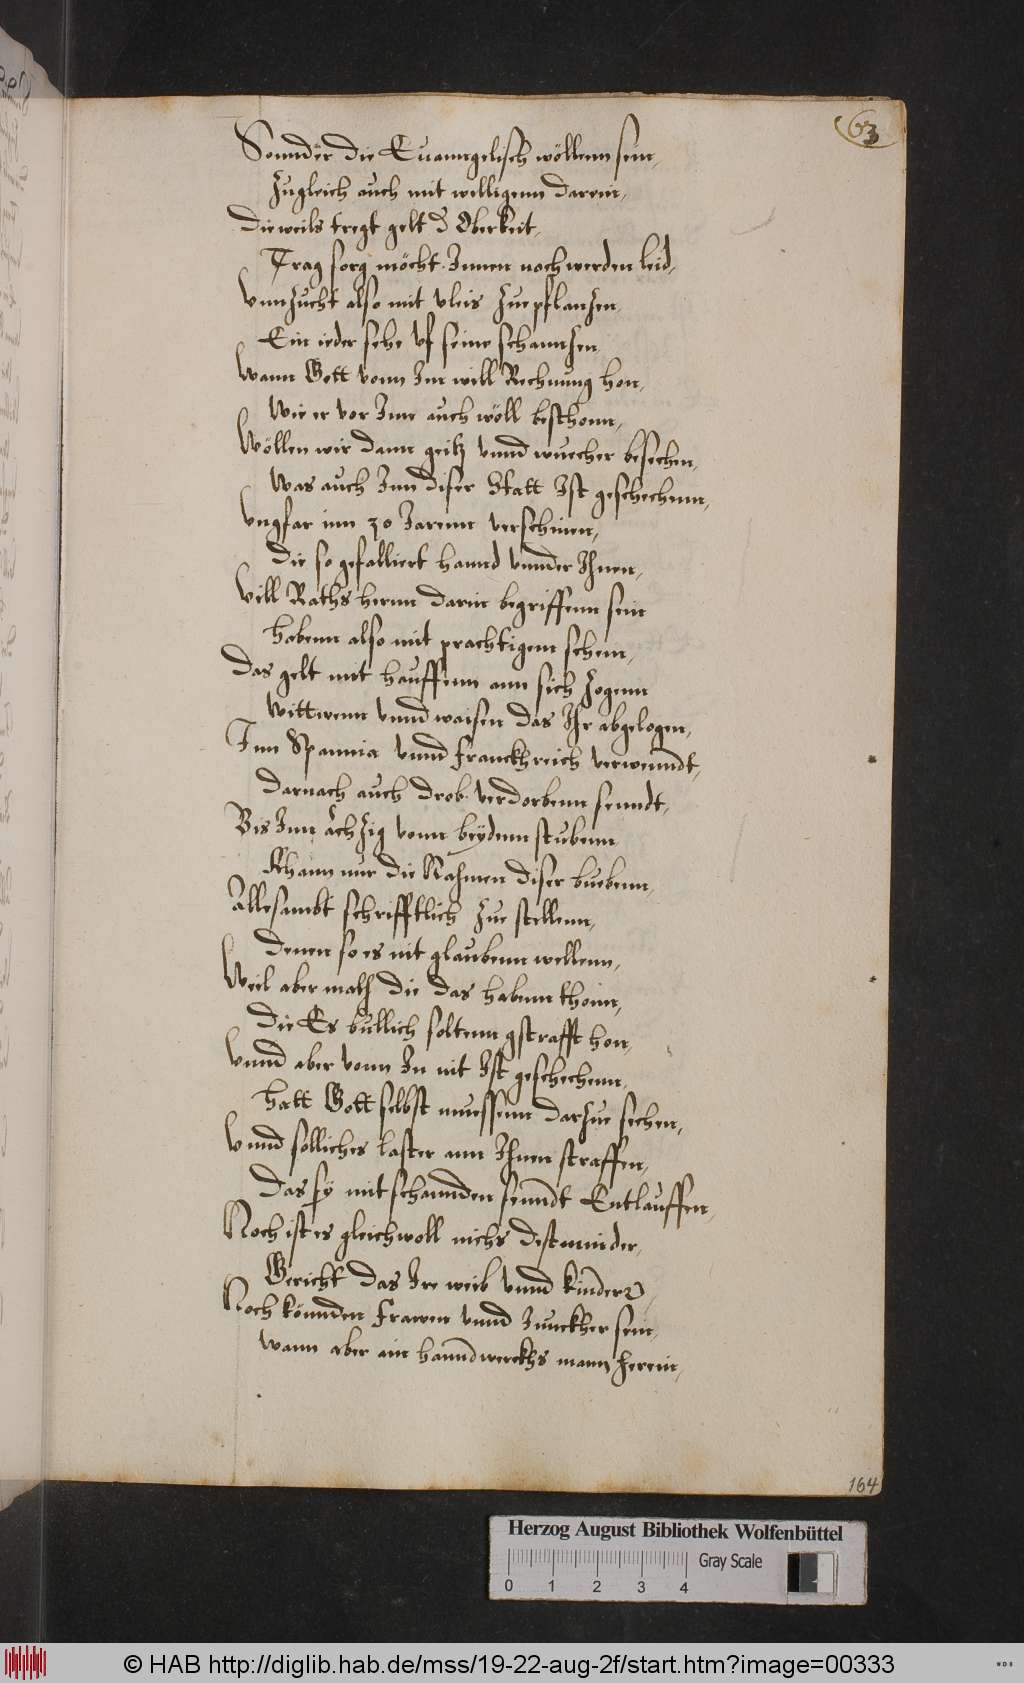 63
Sonnder die Euanngelisch wöllenn sein,
Zugleich auch mit willigenn darein,
Dieweils tregt gelt d Oberkeit,
Trag sorg möcht Innen noch werden leid,
Vnnzucht also mit vleis zue pflanzen,
Ein ieder sehe vf seine schannzen
Wann Gott vonn Im will Rechnung hon,
Wie er vor Imm auch wöll besthonn,
Wöllen wir dann geitz vnnd wuecher besechen,
Was auch Inn diser Statt Ist geschechenn,
Vngfar inn 20 Jarenn verschinen,
Die so gefalliert hannd vnnder Ihnen,
Vill Raths hernn darin begriffenn sein
habenn also mit prachtigem schein,
Das gelt mit hauffenn ann sich zogenn
Wittwenn vnnd waisen das Ihr abgelogen,
Inn Spannia vnnd Franckhreich verwenndt,
Darnach auch drob verdorbenn senndt,
Bis Inn achzig vonn beydenn stubenn
Khann nur die Nahmen diser buebenn,
Allesambt schrifftlich zue stellenn,
Denen so es nit glaubenn wellenn,
Weil aber mals die das habenn thonn,
Die Es billich soltenn gstrafft hon,
Vnnd aber vonn In nit Ist geschechenn,
Hatt Gott selbst muessenn darzue sechen,
Vnnd solliches laster ann Ihnen straffen,
Das sy mit schannden senndt Entlauffen,
Noch ist es gleichwoll nichs destminder,
Gericht das Ire weib vnnd kinder
Noch könnden Frawen vnnd Junckher sein,
Wann aber ein hanndwerckhs mann herein,
164
Herzog August Bibliothek Wolfenbüttel
Gray Scale
0 1 2 3 4
© HAB http://diglib.hab.de/mss/19-22-aug-2f/start.htm?image=00333